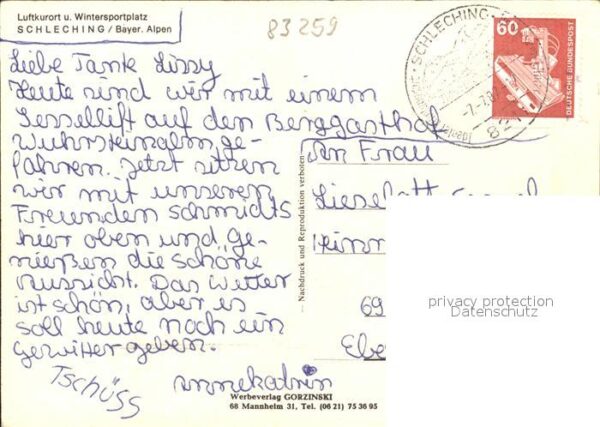 Luftkurort u. Wintersportplatz
SCHLECHING / Bayer. Alpen
83259
SCHLECHING
60
DEUTSCHE BUNDESPOST
Liebe Tante Lissy
Heute sind wir mit einem
Sessellift auf den Berggasthof
Wuhrsteinalm ge-
fahren. Jetzt sitzen
wir mit unseren
Freunden Schmidts
hier oben und ge-
nießen die schöne
Aussicht. Das Wetter
ist schön, aber es
soll heute noch ein
Gewitter geben.
Tschüss
Annekatrin
An Frau
69
Nachdruck und Reproduktion verboten
privacy protection
Datenschutz
Werbeverlag GORZINSKI
68 Mannheim 31, Tel. (06 21) 75 36 95